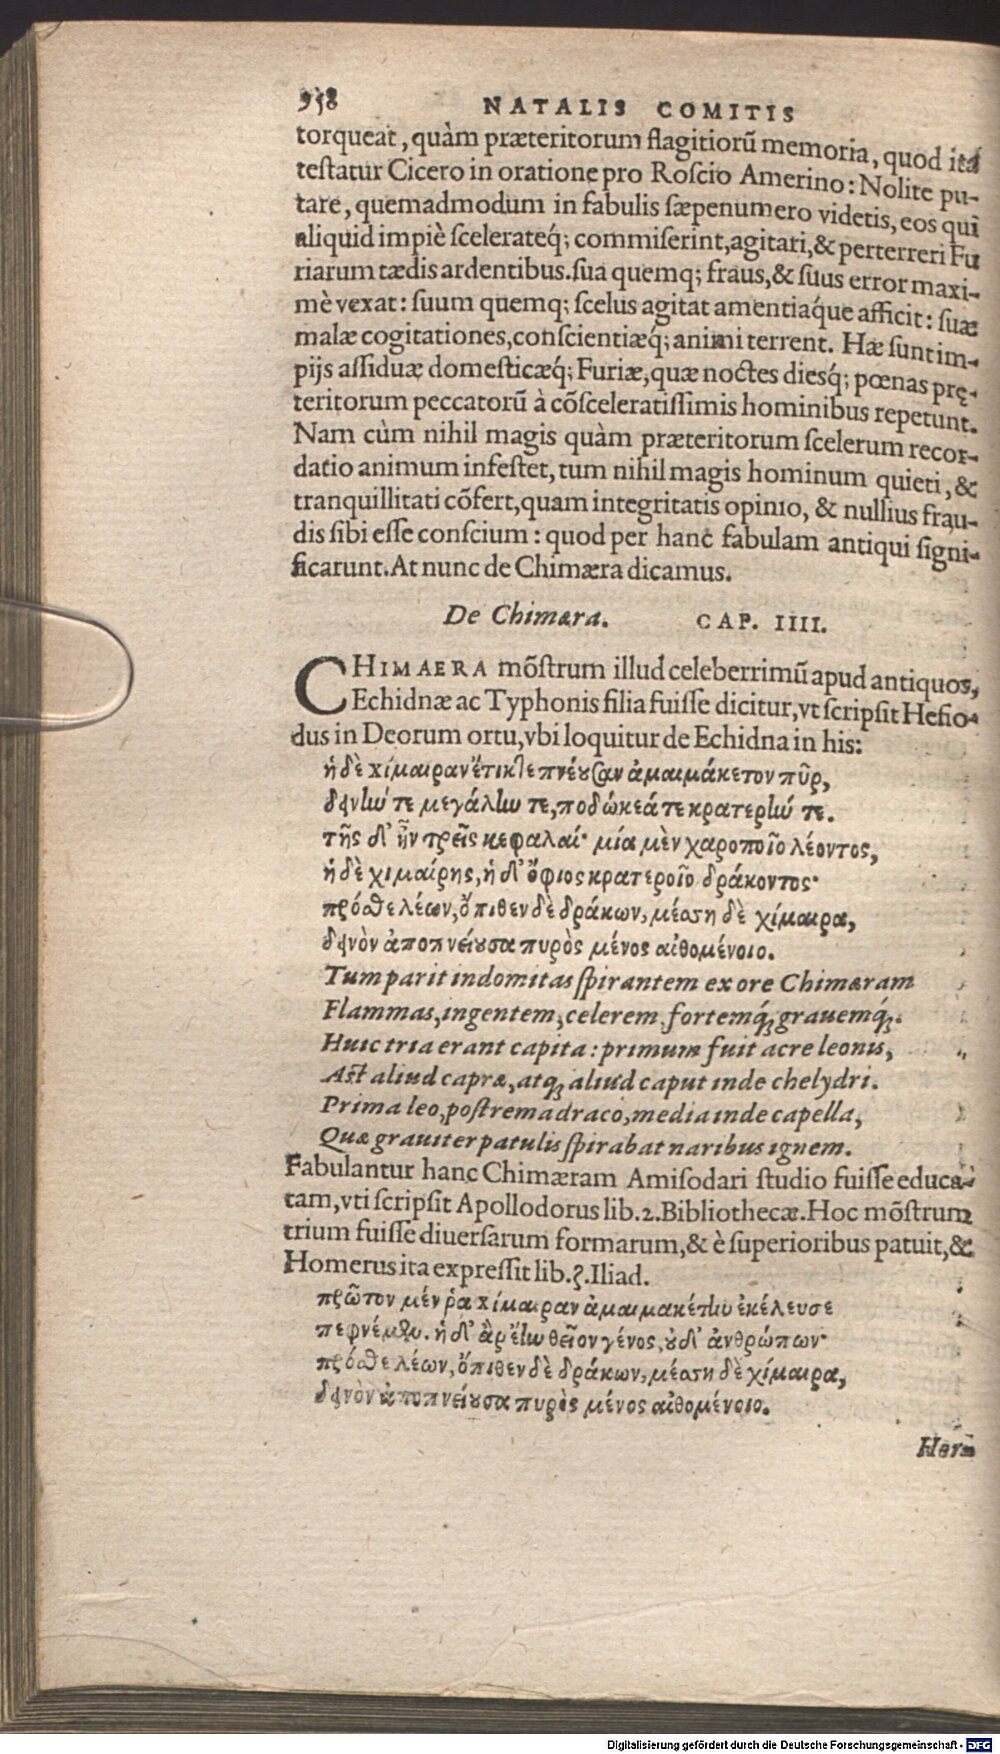 958 NATALIS COMITIS
torqueat, quàm præteritorum flagitiorũ memoria, quod ita
teſtatur Cicero in oratione pro Roſcio Amerino: Nolite pu-
tare, quemadmodum in fabulis ſæpenumero videtis, eos qui
aliquid impiè ſcelerateq́; commiſerint, agitari, & perterreri Fu
riarum tædis ardentibus. ſua quemq; fraus, & ſuus error maxi-
mè vexat: ſuum quemq; ſcelus agitat amentiaq́ue afficit: ſuæ
malæ cogitationes, conſcientiæq́; animi terrent. Hæ ſunt im-
pijs aſſiduæ domeſticæq́; Furiæ, quæ noctes diesq́; pœnas prę-
teritorum peccatorũ à cõſceleratiſſimis hominibus repetunt.
Nam cùm nihil magis quàm præteritorum ſcelerum recor-
datio animum infeſtet, tum nihil magis hominum quieti, &
tranquillitati cõfert, quam integritatis opinio, & nullius frau-
dis ſibi eſſe conſcium: quod per hanc fabulam antiqui ſigni-
ficarunt. At nunc de Chimæra dicamus.
De Chimæra. CAP. IIII.
CHIMAERA mõſtrum illud celeberrimũ apud antiquos,
Echidnæ ac Typhonis filia fuiſſe dicitur, vt ſcripſit Heſio-
dus in Deorum ortu, vbi loquitur de Echidna in his:
ἡ δὲ χίμαιραν ἔτικτε πνέουσαν ἀμαιμάκετον πῦρ,
δεινήν τε μεγάλην τε, ποδώκεά τε κρατερήν τε.
τῆς δ' ἦν τρεῖς κεφαλαί· μία μὲν χαροποῖο λέοντος,
ἡ δὲ χιμαίρης, ἡ δ' ὄφιος κρατεροῖο δράκοντος·
πρόσθε λέων, ὄπιθεν δὲ δράκων, μέσση δὲ χίμαιρα,
δεινὸν ἀποπνείουσα πυρὸς μένος αἰθομένοιο.
Tum parit indomitas ſpirantem ex ore Chimæram
Flammas, ingentem, celerem, fortemq́; grauemq́;.
Huic tria erant capita: primum fuit acre leonis,
Aſt aliud capræ, atq; aliud caput inde chelydri.
Prima leo, poſtrema draco, media inde capella,
Quæ grauiter patulis ſpirabat naribus ignem.
Fabulantur hanc Chimæram Amiſodari ſtudio fuiſſe educa-
tam, vti ſcripſit Apollodorus lib. 2. Bibliothecæ. Hoc mõſtrum
trium fuiſſe diuerſarum formarum, & è ſuperioribus patuit, &
Homerus ita expreſſit lib. ζ. Iliad.
πρῶτον μέν ῥα χίμαιραν ἀμαιμακέτην ἐκέλευσε
πεφνέμεν. ἡ δ' ἂρ ἔην θεῖον γένος, οὐδ' ἀνθρώπων·
πρόσθε λέων, ὄπιθεν δὲ δράκων, μέσση δὲ χίμαιρα,
δεινὸν ἀποπνείουσα πυρὸς μένος αἰθομένοιο.
Digitalisierung gefördert durch die Deutsche Forschungsgemeinschaft - DFG